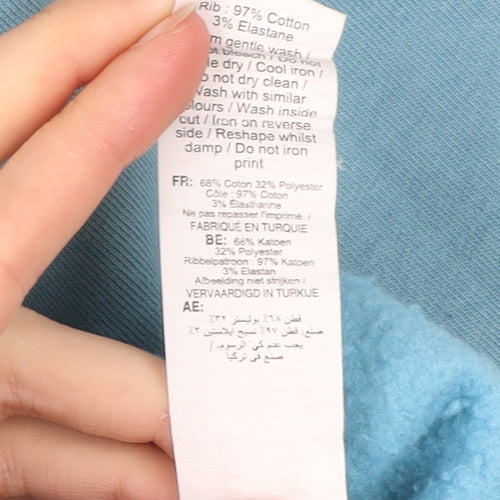 Rib : 97% Cotton
3% Elastane
gentle wash /
bleach / Do not
dry / Cool iron /
not dry clean /
Wash with similar
colours / Wash inside
out / Iron on reverse
side / Reshape whilst
damp / Do not iron
print
FR: 68% Coton 32% Polyester
Côle : 97% Coton
3% Élasthanne
Ne pas repasser l'imprimé. /
FABRIQUÉ EN TURQUIE
BE: 68% Katoen
32% Polyester
Ribbelpatroon : 97% Katoen
3% Elastan
Afbeelding niet strijken /
VERVAARDIGD IN TURKIJE
AE:
قطن ٦٨٪ بوليستر ٣٢٪
ضلع: قطن ٩٧٪ نسيج ايلاستين ٣٪
يجب عدم كي الرسوم. /
صنع في تركيا